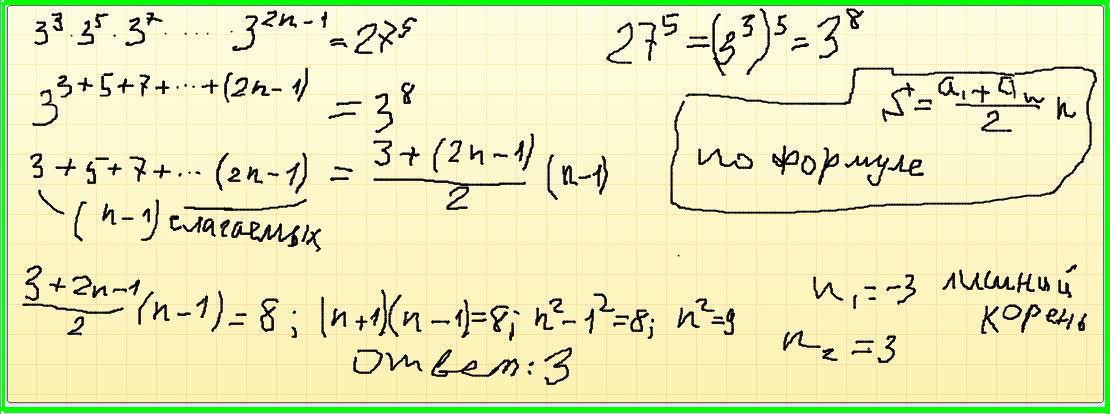 3^3 · 3^5 · 3^7 · ..... 3^{2n-1} = 27^5
27^5 = (3^3)^5 = 3^8
3^{3+5+7+...+(2n-1)} = 3^8
S = \frac{a_1 + a_n}{2} n
по формуле
3 + 5 + 7 + ... (2n-1) = \frac{3 + (2n-1)}{2} (n-1)
(n-1) слагаемых
\frac{3+2n-1}{2} (n-1) = 8; (n+1)(n-1)=8; n^2-1^2=8; n^2=9
n_1 = -3 лишний корень
n_2 = 3
Ответ: 3